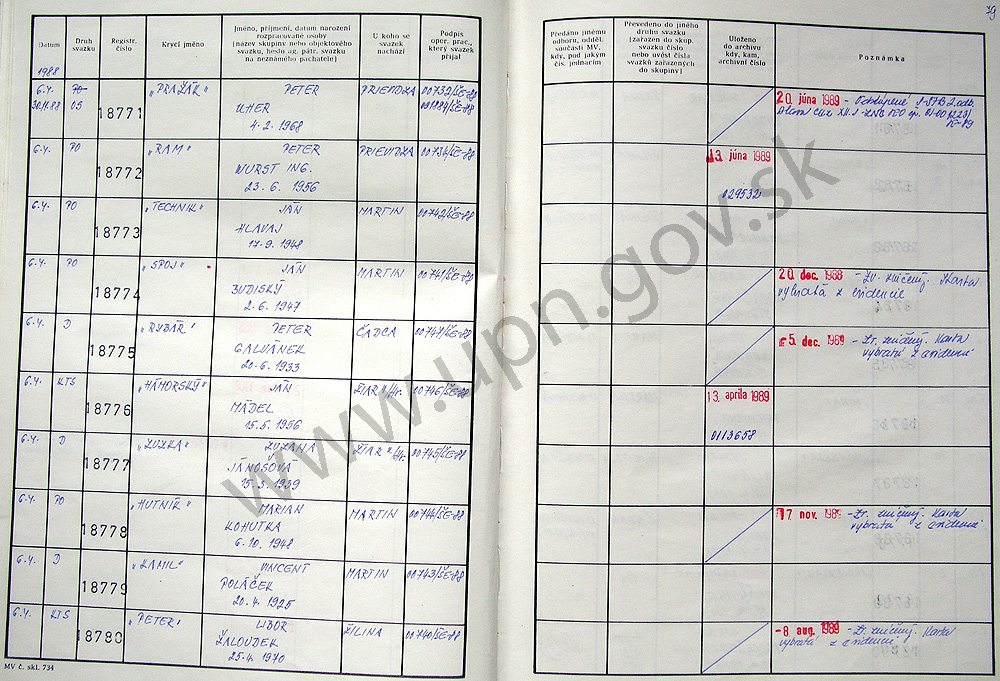 79
Datum
Druh svazku
Registr. číslo
Krycí jméno
Jméno, příjmení, datum narození
rozpracované osoby
(název skupiny nebo objektového
svazku, heslo ag. pátr. svazku
na neznámého pachatele)
U koho se
svazek
nachází
Podpis
oper. prac.,
který svazek
přijal
Předáno jinému
odboru, odděl.
součásti MV,
kdy, pod jakým
čís. jednacím
Převedeno do jiného
druhu svazku
(zařazen do skup.
svazku číslo
nebo uvést čísla
svazků zařazených
do skupiny)
Uloženo
do archivu
kdy, kam,
archivní číslo
Poznámka
1988
6.4. PO 18771 "PRAŽÁK" PETER PRIEVIDZA 00732/ŠE-88
30.11.88 05 UHER
4. 2. 1968
20. júna 1989 - Odstúpené
6.4. PO 18772 "RAM" PETER PRIEVIDZA 00736/ŠE-88
WURST ING.
23. 6. 1956
13. júna 1989
029532
6.4. PO 18773 "TECHNIK" JÁN MARTIN 00742/ŠE-88
HLAVAJ
17. 9. 1948
6.4. PO 18774 "SPOJ" JÁN MARTIN 00741/ŠE-88
BUDISKÝ
2. 6. 1947
20. dec. 1988 - Zv. zničený. Karta
vybratá z evidencie
6.4. D 18775 "RYBÁR" PETER ČADCA 00747/ŠE-88
GALVÁNEK
20. 6. 1933
5. dec. 1989 - Zv. zničený. Karta
vybratá z evidencie
6.4. KTS 18776 "HÁMORSKÝ" JÁN ŽIAR n/Hr. 00746/ŠE-88
MÁDEL
15. 5. 1956
13. apríla 1989
0113658
6.4. D 18777 "ZUZKA" ZUZANA ŽIAR n/Hr. 00745/ŠE-88
JÁNOŠOVÁ
15. 3. 1939
6.4. PO 18778 "HUTNÍK" MARIAN MARTIN 00744/ŠE-88
KOHUTKA
6. 10. 1948
17. nov. 1989 - Zv. zničený. Karta
vybratá z evidencie
6.4. D 18779 "KAMIL" VINCENT MARTIN 00743/ŠE-88
POLÁČEK
20. 4. 1925
6.4. KTS 18780 "PETER" LIBOR ŽILINA 00740/ŠE-88
ŽALOUDEK
25. 4. 1970
-8. aug. 1989 - Zv. zničený. Karta
vybratá z evidencie
MV č. skl. 734
www.upn.gov.sk